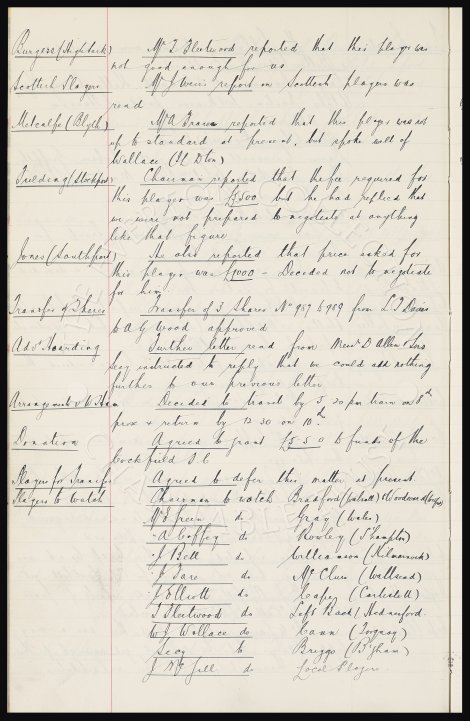 Burgess (High Park) Mr T. Fleetwood reported that this player was
not good enough for us
Scottish Players Mr J Weir's report on Scottish players was
read
Metcalfe (Blyth) Mr A Fraser reported that this player was not
up to standard at present, but spoke well of
Wallace (St Dton)
Fielding (Stockport) Chairman reported that the fee required for
this player was £3500 but he had replied that
we were not prepared to negotiate at anything
like that figure
Jones (Southport) He also reported that price asked for
this player was £1000 - Decided not to negotiate
for him
Transfer of Shares Transfer of 3 Shares No 987 to 989 from L. J. Davies
to A G Wood approved
Advt Hoarding Further letter read from Messrs D Allen & Sons
Secy instructed to reply that we could add nothing
further to our previous letter
Arrangements v W. Ham Decided to travel by 5.30 pm train on 8th
prox & return by 12.30 on 10th
Donation Agreed to grant £5.5.0 to funds of the
Cockfield F.C
Players for Transfer Agreed to defer this matter at present.
Players to Watch Chairman to watch Bradford (Walsall) & Woodward
Mr E Green do Gray (Wales)
" A Coffey do Rowley (S'hampton)
" J Bell do Williamson (Kilmarnock)
" J Fare do McClure (Wallsend)
" J Elliott do Cape (Carlisle)
" T Fleetwood do Left Back / Hednesford
" W J Wallace do Cann (Torquay)
Secy to Briggs (B'gham)
J McGill do Local Players